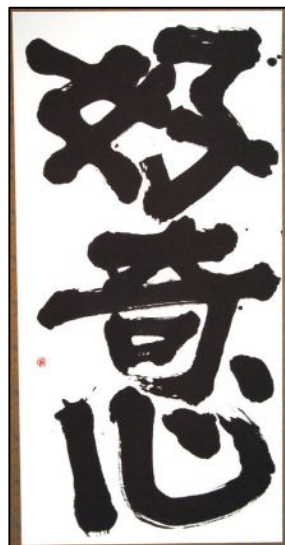 好奇心